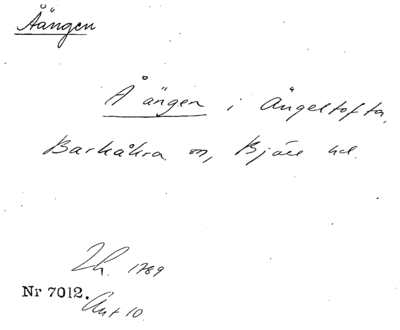 Åängen
Å ängen i Ängeltofta,
Barkåkra sn, Bjäre hd.
Lh. 1789
Nr 7012.
Akt 10.